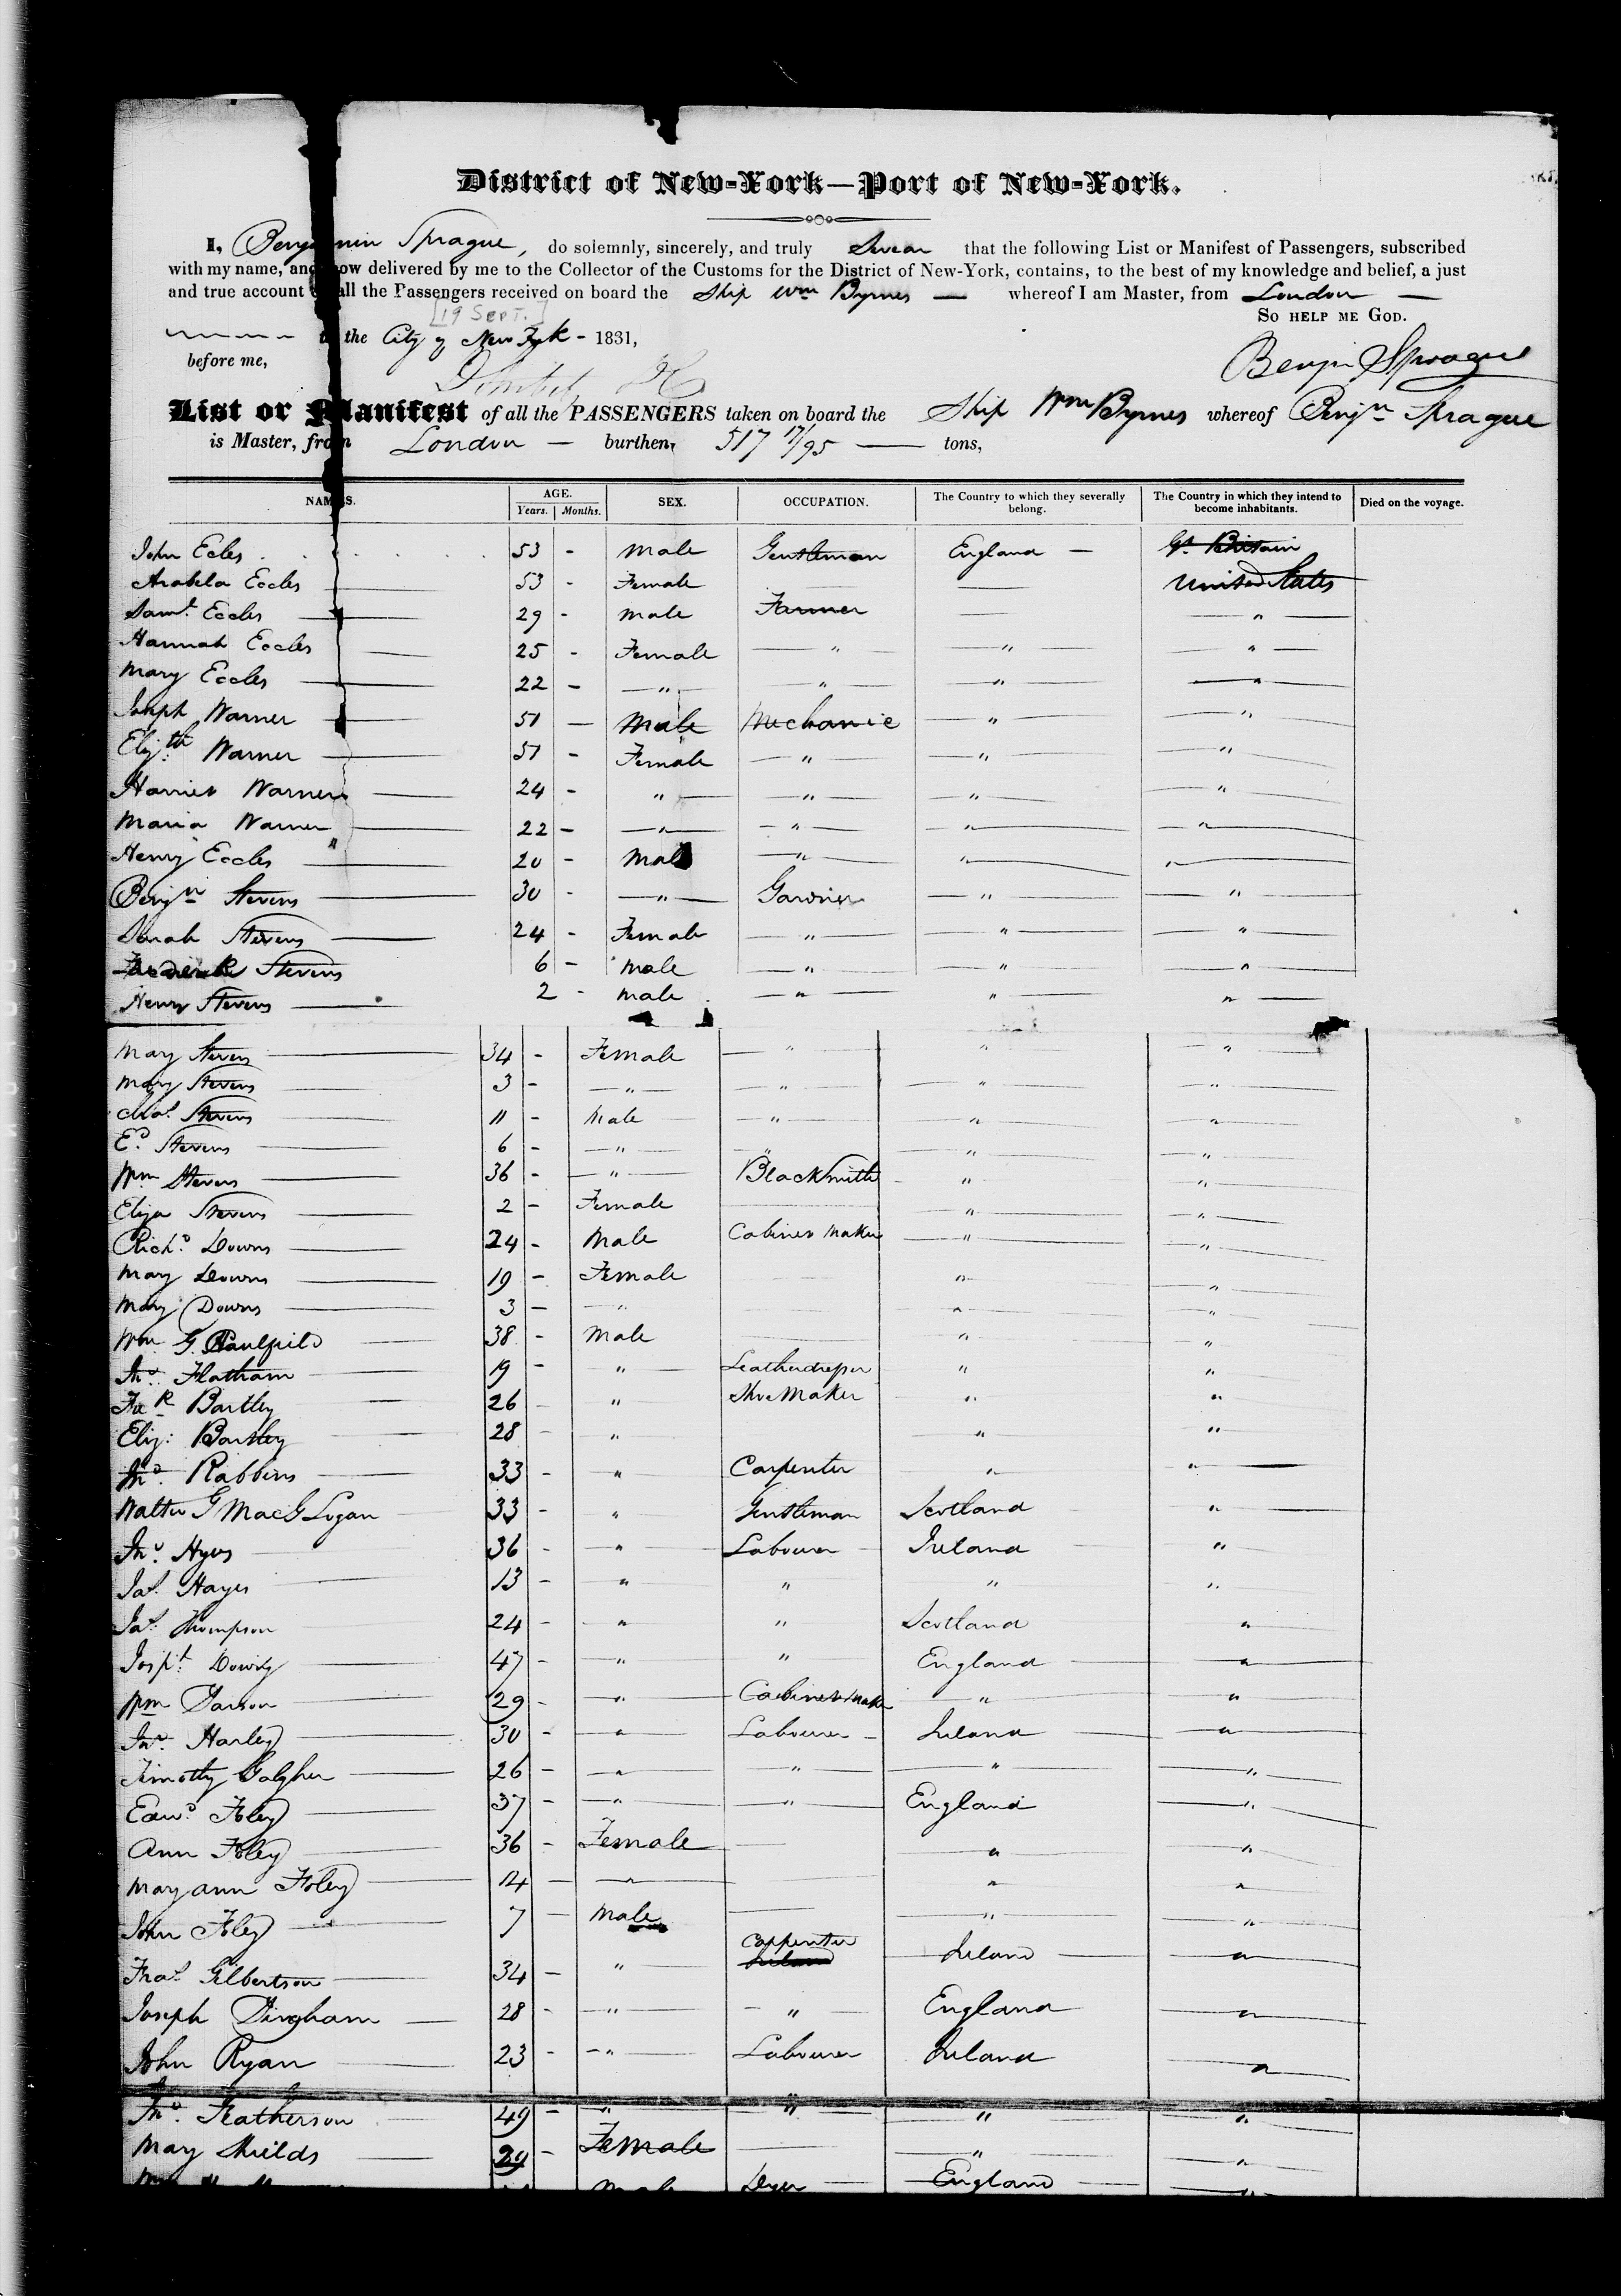 District of New-York—Port of New-York.
I, Benjamin Sprague, do solemnly, sincerely, and truly Swear that the following List or Manifest of Passengers, subscribed
with my name, and now delivered by me to the Collector of the Customs for the District of New-York, contains, to the best of my knowledge and belief, a just
and true account of all the Passengers received on board the Ship Wm Byrnes — whereof I am Master, from London —
[19 SEPT.]
SO HELP ME GOD.
to the City of New York - 1831,
before me,
Benjn Sprague
List or Manifest of all the PASSENGERS taken on board the Ship Wm Byrnes whereof Benjn Sprague
is Master, from London — burthen, 517 17/95 — tons,
NAMES. AGE. Years. Months. SEX. OCCUPATION. The Country to which they severally belong. The Country in which they intend to become inhabitants. Died on the voyage.
John Eccles 53 - Male Gentleman England — Gt Britain
Arabela Eccles 53 - Female — United States
Saml. Eccles 29 - Male Farmer — "
Hannah Eccles 25 - Female " " "
Mary Eccles 22 - " " " "
Joseph Warner 51 - Male Mechanic " "
Elizth Warner 51 - Female " " "
Harriet Warner 24 - " " " "
Maria Warner 22 - " " " "
Henry Eccles 20 - Male " " "
Benjn Stevens 30 - " Gardner " "
Sarah Stevens 24 - Female " " "
Frederick Stevens 6 - Male " " "
Henry Stevens 2 - Male " " "
Mary Stevens 34 - Female " " "
Mary Stevens 3 - " " " "
Chas. Stevens 11 - Male " " "
Ed. Stevens 6 - " " " "
Wm Stevens 36 - " BlackSmith " "
Eliza Stevens 2 - Female " "
Richd. Downs 24 - Male Cabinet Maker " "
Mary Downs 19 - Female " "
Mary Downs 3 - " " "
Wm. G. 38 - Male " "
Jno. Flatham 19 - " Leatherdresser " "
Fredk Bartley 26 - " Shoe Maker " "
Eliz: Bartley 28 - " " "
Jno. Robbins 33 - " Carpenter " "
Walter G MacG Logan 33 - " Gentleman Scotland "
Jno. Hyes 36 - " Labourer Ireland "
Jas. Hayes 13 - " " " "
Jas. Thompson 24 - " " Scotland "
Josph. Dowdy 47 - " " England "
Wm 29 - " Cabinet Maker " "
Jno. Harley 30 - " Labourer - Ireland "
Timothy Galgher 26 - " " " "
Edwd. Foley 37 - " " England "
Ann Foley 36 - Female — " "
Mary ann Foley 14 - " " "
John Foley 7 - Male — " "
Carpenter
Thos. Gilbertson 34 - " Ireland Ireland "
Joseph Dingham 28 - " " England "
John Ryan 23 - " Labourer Ireland "
Jno. Featherson 49 - " " " "
Mary Shields 29 - Female — " "
Male Dyer England "